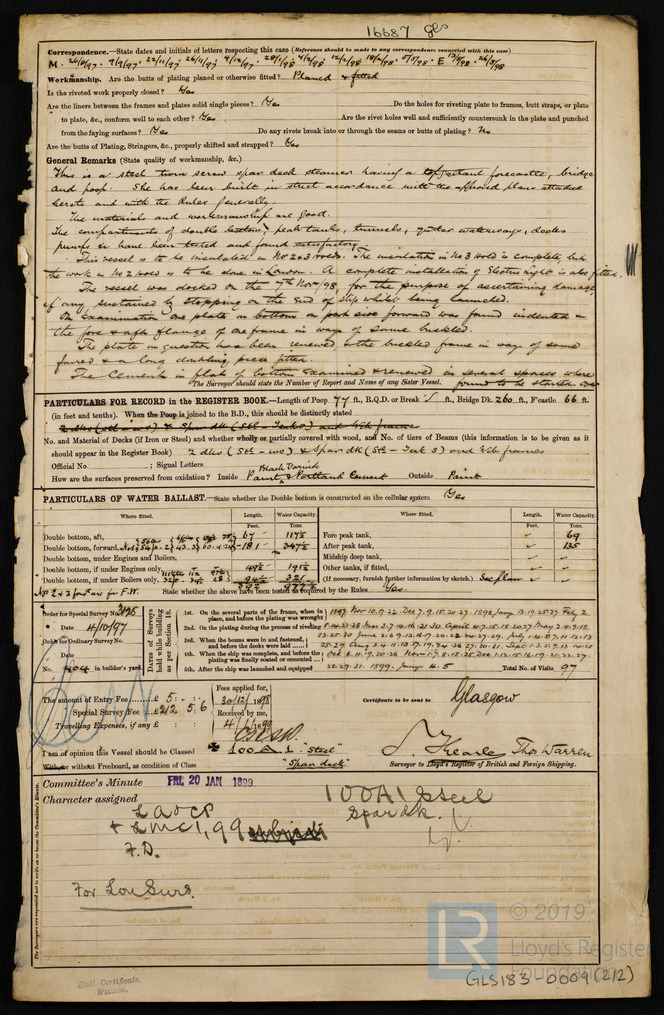 16687 Gls
Correspondence.—State dates and initials of letters respecting this case (Reference should be made to any correspondence connected with this case)
M. 26/10/97. 9/11/97. 22/11/97. 26/11/97. 4/12/97. 28/1/98. 4/2/98. 12/2/98. 18/2/98. 5/5/98. E 26/5/98
Workmanship. Are the butts of plating planed or otherwise fitted? Planed & fitted
Is the riveted work properly closed? Yes
Are the liners between the frames and plates solid single pieces? Yes Do the holes for riveting plate to frames, butt straps, or plate
to plate, &c., conform well to each other? Yes Are the rivet holes well and sufficiently countersunk in the plate and punched
from the faying surfaces? Yes Do any rivets break into or through the seams or butts of plating? No
Are the butts of Plating, Stringers, &c., properly shifted and strapped? Yes
General Remarks (State quality of workmanship, &c.)
This is a steel twin screw spar deck steamer having a topgallant forecastle, bridge
and poop. She has been built in strict accordance with the approved plans attached
hereto and with the Rules generally.
The materials and workmanship are good.
The compartments of double bottom, peak tanks, tunnels, gutter waterways, decks
pumps &c have been tested and found satisfactory
This vessel is to be insulated in Nos 2 & 3 Holds. The insulation in No 3 Hold is complete but
the work in No 2 Hold is to be done in London. A complete installation of Electric light is also fitted.
The vessel was docked on the 7th Nov /98 for the purpose of ascertaining damage
if any sustained by stopping on the end of slip whilst being launched.
On examination one plate in bottom on port side forward was found indented &
the fore & aft flange of one frame in way of same buckled.
The plate in question has been renewed & the buckled frame in way of same
faired & a long doubling piece fitted.
The Cement in flat of bottom examined & renewed in several spaces where
found to be started
The Surveyor should state the Number of Report and Name of any Sister Vessel.
PARTICULARS FOR RECORD in the REGISTER BOOK.—Length of Poop 77 ft., R.Q.D. or Break ✓ ft., Bridge Dk. 260 ft., F'castle 66 ft.
(in feet and tenths). When the Poop is joined to the B.D., this should be distinctly stated
No. and Material of Decks (if Iron or Steel) and whether wholly or partially covered with wood, and No. of tiers of Beams (this information is to be given as it
should appear in the Register Book) 2 dks (Stl - ws) & Spar dk (Stl - ) and Web frames
Official No. ; Signal Letters
Black Varnish
How are the surfaces preserved from oxidation? Inside Paint, & Portland Cement Outside Paint
PARTICULARS OF WATER BALLAST.—State whether the Double bottom is constructed on the cellular system Yes
Where fitted. Length. Water Capacity. Where fitted. Length. Water Capacity.
Feet. Tons. Feet. Tons.
Double bottom, aft, 67 117½ Fore peak tank, ✓ 69
Double bottom, forward, 181 347½ After peak tank, ✓ 135
Double bottom, under Engines and Boilers, Midship deep tank, ✓
Double bottom, if under Engines only, 49½ 191½ Other tanks, if fitted, ✓
Double bottom, if under Boilers only, 94½ 321 (If necessary, furnish further information by sketch.) See plan ✓
Nos 2 & 3 for F.W. State whether the above have been tested as required by the Rules Yes
Order for Special Survey No. 3195
Date 4/10/97
Order for Ordinary Survey No.
Date
No. 404 in builder's yard.
DATES of Surveys held while building as per Section 18.
1st. On the several parts of the frame, when in place, and before the plating was wrought
2nd. On the plating during the process of riveting
3rd. When the beams were in and fastened, and before the decks were laid
4th. When the ship was complete, and before the plating was finally coated or cemented
5th. After the ship was launched and equipped
28-29-31. 1899. Jany 4. 5 Total No. of Visits 97
The amount of Entry Fee £ 5 : :
Special Survey Fee £ 212 . 5 . 6
Travelling Expenses, if any £ : :
Fees applied for,
30/12/1898
Received by me,
4/1/1899
Certificate to be sent to Glasgow
I am of opinion this Vessel should be Classed ✠ 100 A 1 "Steel"
With or without Freeboard, as condition of Class "Spar deck"
Thos Warren
Surveyor to Lloyd's Register of British and Foreign Shipping.
Committee's Minute FRI. 20 JAN 1899
Character assigned 100A1 Steel
Spar dk.
LA & CP
+ LMC 1,99 subject
F.D.
For Lon Survs.
The Surveyors are requested not to write on or below the Committee's Minute.
Hull Certificate.
Written.
LR
© 2019
Lloyd's Register
Foundation
GLS183-0009 (2/2)